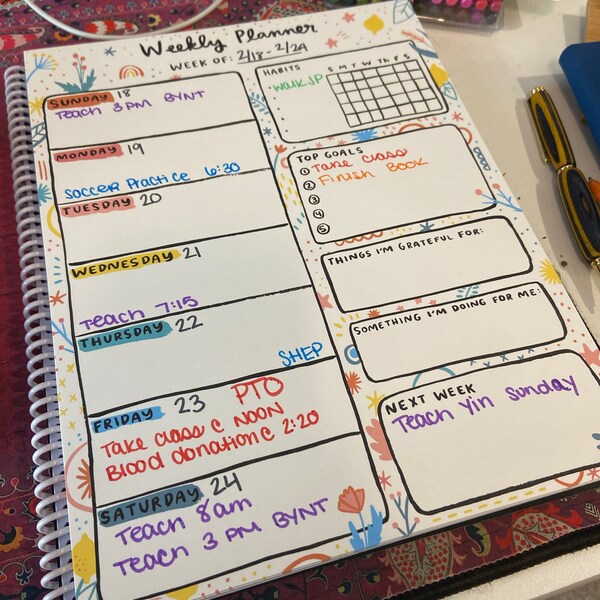 Weekly Planner
WEEK OF: 2/18 - 2/24
SUNDAY 18
Teach 3 PM BYNT
MONDAY 19
Soccer Practice 6:30
TUESDAY 20
WEDNESDAY 21
Teach 7:15
THURSDAY 22
SHEP
FRIDAY 23 PTO
Take class @ NOON
Blood donation @ 2:20
SATURDAY 24
Teach 8am
Teach 3 PM BYNT
HABITS S M T W Th F S
walk JP
TOP GOALS
1 Take class
2 Finish Book
3
4
5
THINGS I'M GRATEFUL FOR:
SOMETHING I'M DOING FOR ME:
NEXT WEEK
Teach Yin Sunday